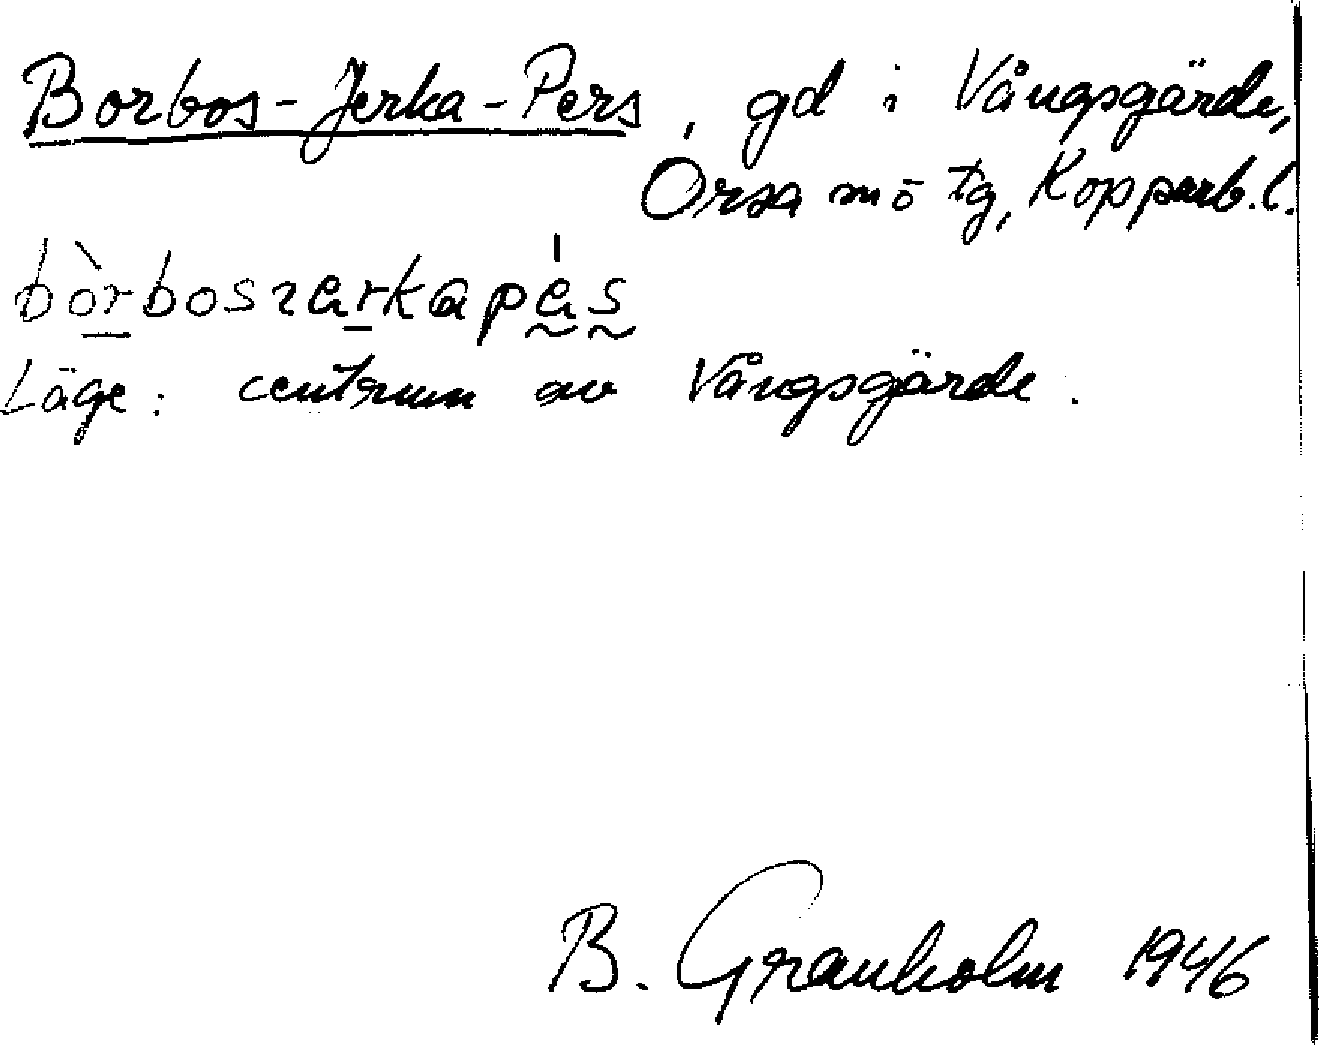 Borbos-Jerka-Pers, gd i Vångsgärde,
Orsa sn ö tg, Kopparb.l.
bòrboszerkapás
Läge: centrum av Vångsgärde.
B. Granholm 1946